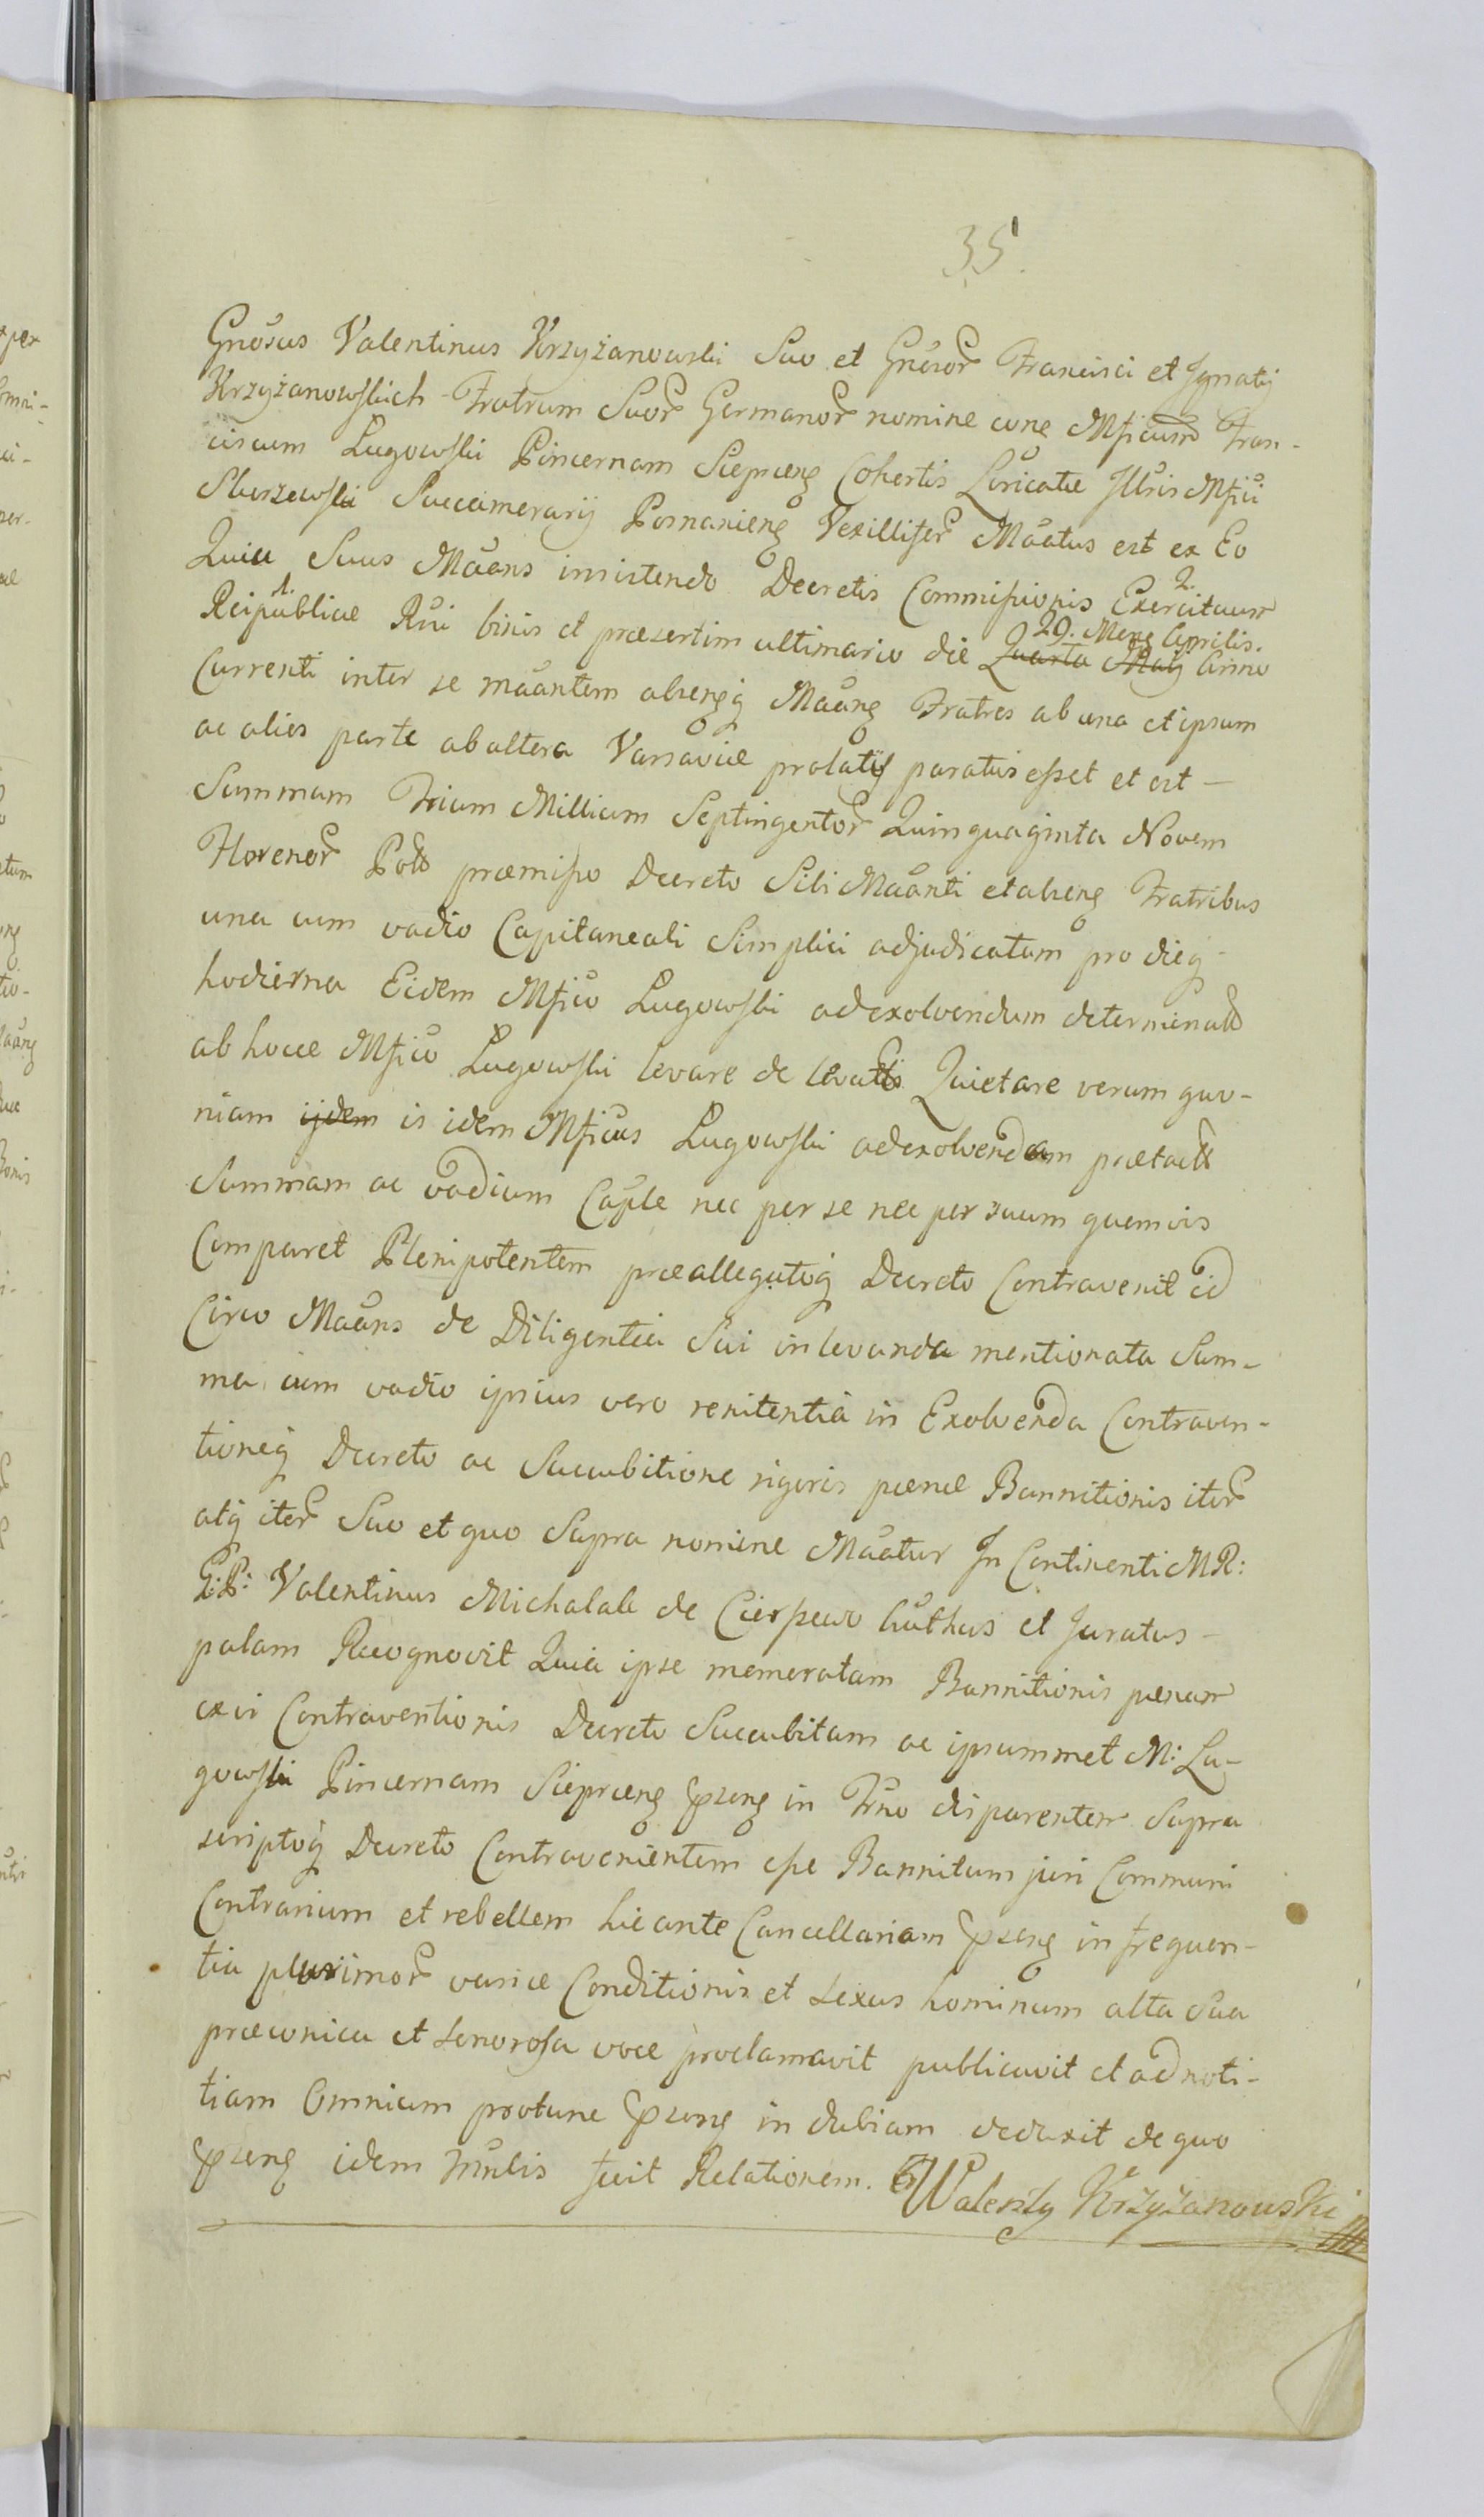 35.
Gnosus Valentinus Krzyżanowski Suo et Gnosor Francisci et Ignatij
Krzyżanowskich Fratrum Suor Germanor nomine cone Mficum Fran-
ciscum Lugowski Pincernam Sieprceng Cohortis Loricatæ Illris Mfici
Skorzewski Succamerarij Posnanieng Vexillifer Maatus est ex Eo
Quia Suus Maans insistendo Decretis Commissionis Exercituum 2.
Reipublicæ 1. Rni binis et præsertim ultimario die Quarta Maij 29. Mens Aprilis. Anno
Currenti inter se maantem absengq Maang Fratres ab una et ipsum
ac alios parte ab altera Varsaviæ prolatis paratus esset et est –
Summam Trium Millium Septingentor Quinquaginta Novem
Florenor Pol præmisso Decreto Sibi Maanti et abseng Fratribus
una cum vadio Capitaneali Simplici adjudicatam pro dieq
hodierna Eidem Mfico Lugowski ad exolvendum determinat
ab hocce Mfico Lugowski levare de levatis Quietare verum quo-
niam ijdem is idem Mficus Lugowski ad exolvendam prætact
Summam ac vadium Caple nec per se nec per suum quemvis
Comparet Plenipotentem præallegatoq Decreto Contravenit id
Circo Maans de Diligentia Sui in levanda mentionata Sum-
ma cum vadio ipsius vero renitentia in Exolvenda Contraven-
tioneq Decreto ac Succubitione rigoris pænæ Bannitionis iter
atq iter Suo et quo Supra nomine Maatur In Continenti MR:
G:P: Valentinus Michalak de Cierpewo Authus et Juratus –
palam Recognovit Quia ipse memoratam Bannitionis pænam
ex vi Contraventionis Decreto Succubitam ac ipsummet M: Lu-
gowski Pincernam Sieprceng pseng in Trno disparentem Supra
scriptoq Decreto Contravenientem esse Bannitum juri Communi
Contrarium et rebellem hic ante Cancellariam pseng in frequen-
tia plurimor variæ Conditionis et sexus hominum alta sua
præconica et sonorosa voce proclamavit publicavit et ad noti-
tiam Omnium protunc pseng in dubiam deduxit de quo
pseng idem Mnlis fecit Relationem. Walenty Krzyżanowski